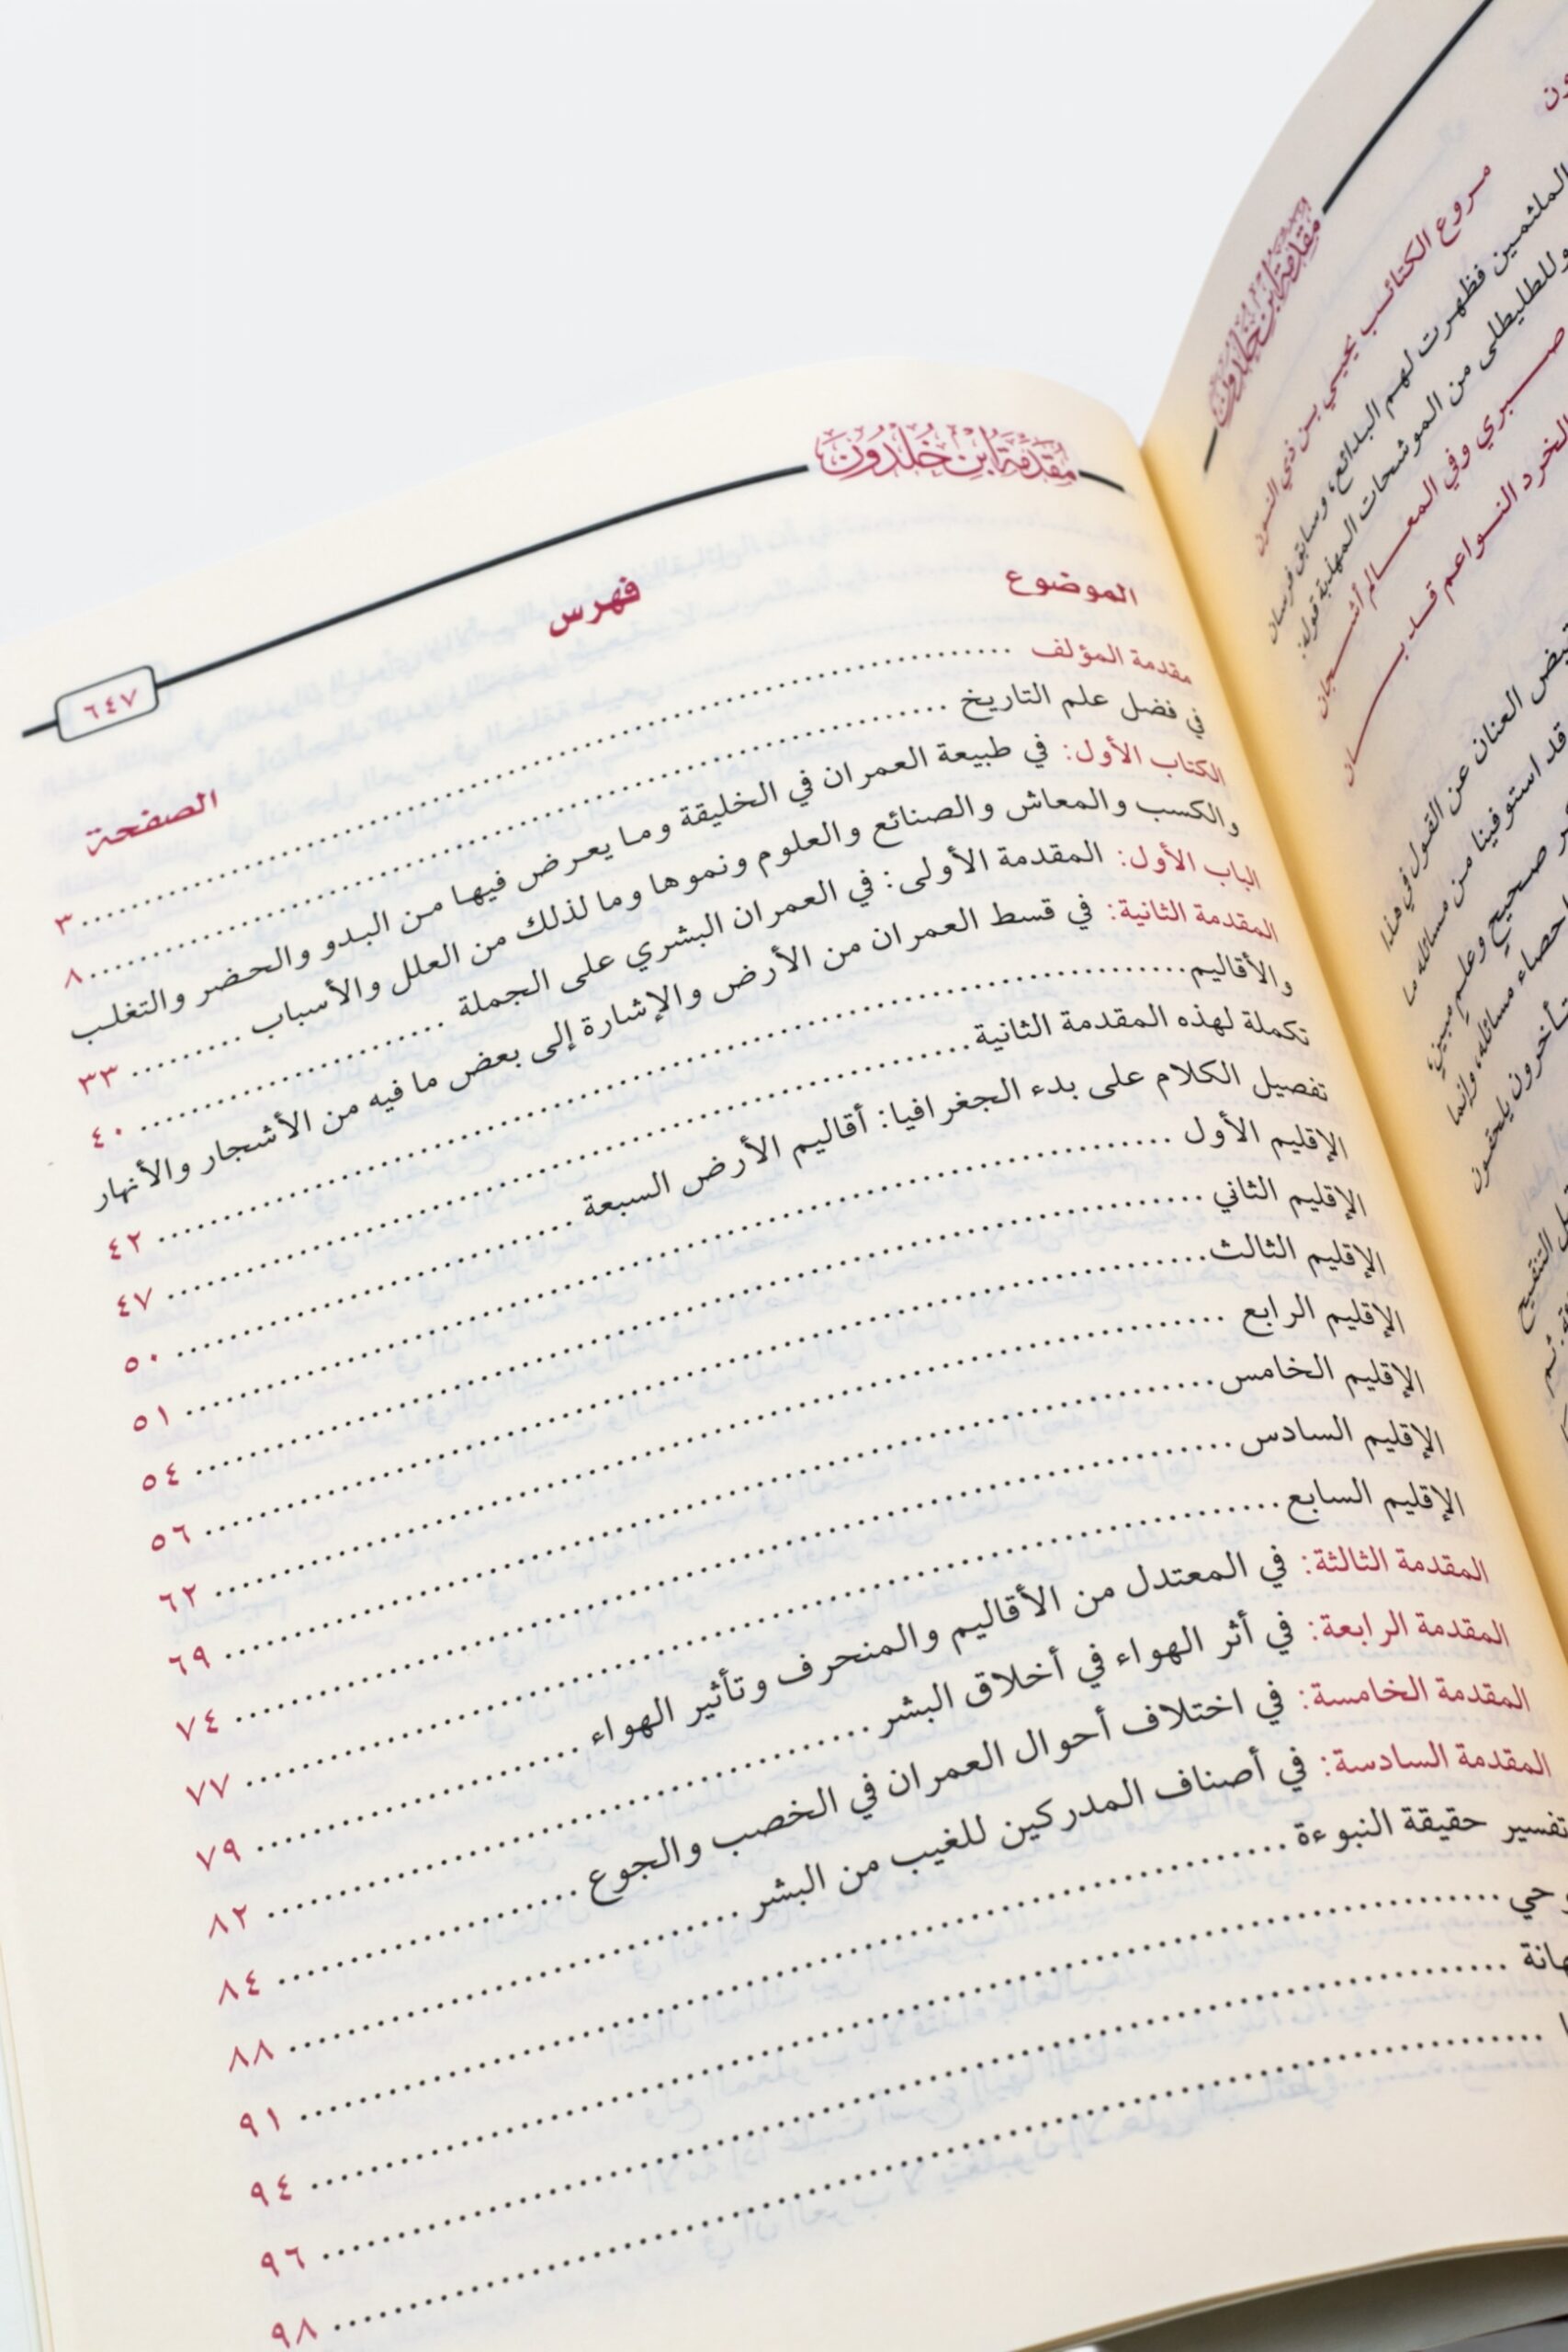 مروع الكتائب يحيي بن ذي النون
الملثمين فظهرت لهم البدائع، وسابق فرسان
وللطليطلي من الموشحات المهذبة قوله:
صبري وفي المعالم أشجان
الخرد النواعم قد بان
العنان عن القول في هذا
قد استوفينا من مسائله ما
صحيح وعلم مبين،
إحصاء مسائله، وإنما
يلحقون
مقدمة ابن خلدون
مقدمة ابن خلدون
٦٤٧
فهرس
الموضوع الصفحة
مقدمة المؤلف ٣
في فضل علم التاريخ ٨
الكتاب الأول: في طبيعة العمران في الخليقة وما يعرض فيها من البدو والحضر والتغلب
والكسب والمعاش والصنائع والعلوم ونموها وما لذلك من العلل والأسباب ٣٣
الباب الأول: المقدمة الأولى: في العمران البشري على الجملة ٤٠
المقدمة الثانية: في قسط العمران من الأرض والإشارة إلى بعض ما فيه من الأشجار والأنهار
والأقاليم ٤٢
تكملة لهذه المقدمة الثانية ٤٧
تفصيل الكلام على بدء الجغرافيا: أقاليم الأرض السبعة ٥٠
الإقليم الأول ٥١
الإقليم الثاني ٥٤
الإقليم الثالث ٥٦
الإقليم الرابع ٦٢
الإقليم الخامس ٦٩
الإقليم السادس ٧٤
الإقليم السابع ٧٧
المقدمة الثالثة: في المعتدل من الأقاليم والمنحرف وتأثير الهواء ٧٩
المقدمة الرابعة: في أثر الهواء في أخلاق البشر ٨٢
المقدمة الخامسة: في اختلاف أحوال العمران في الخصب والجوع ٨٤
المقدمة السادسة: في أصناف المدركين للغيب من البشر ٨٨
تفسير حقيقة النبوءة ٩١
٩٤
٩٦
٩٨